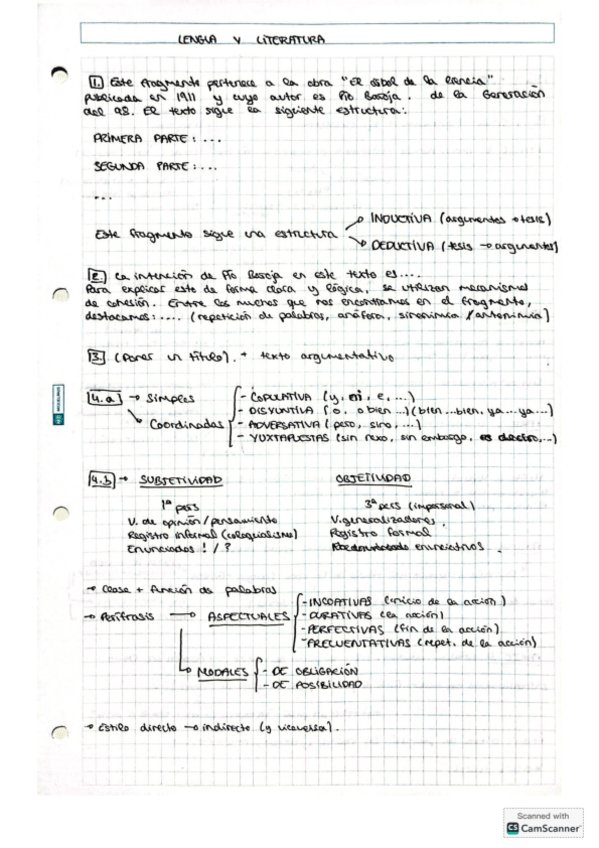 LENGUA Y LITERATURA
1. Este fragmento pertenece a la obra "El árbol de la ciencia"
publicada en 1911 y cuyo autor es Pío Baroja. de la Generación
del 98. El texto sigue la siguiente estructura:
PRIMERA PARTE: ...
SEGUNDA PARTE: ...
...
Este fragmento sigue una estructura
INDUCTIVA (argumentos → tesis)
DEDUCTIVA (tesis → argumentos)
2. La intención de Pío Baroja en este texto es....
Para explicar esto de forma clara y lógica, se utilizan mecanismos
de cohesión. Entre los muchos que nos encontramos en el fragmento,
destacamos: .... (repetición de palabras, anáfora, sinonimia / antonimia)
3. (Poner un título). + texto argumentativo
4.a → Simples
↘ Coordinadas
- COPULATIVA (y, ni, e, ...)
- DISYUNTIVA (o, o bien ...) (bien ... bien, ya ... ya ...)
- ADVERSATIVA (pero, sino, ...)
- YUXTAPUESTAS (sin nexo, sin embargo, es decir, ...)
4.b → SUBJETIVIDAD OBJETIVIDAD
1ª pers 3ª pers (impersonal)
V. de opinión / pensamiento V. generalizadores
Registro informal (coloquialismo) Registro formal
Enunciados ! / ? enunciativos
→ Clase + función de palabras
→ Perífrasis → ASPECTUALES
- INCOATIVAS (inicio de la acción)
- DURATIVAS (en acción)
- PERFECTIVAS (fin de la acción)
- FRECUENTATIVAS (repet. de la acción)
→ MODALES
- DE OBLIGACIÓN
- DE POSIBILIDAD
→ Estilo directo → indirecto (y viceversa).
Scanned with
CS CamScanner